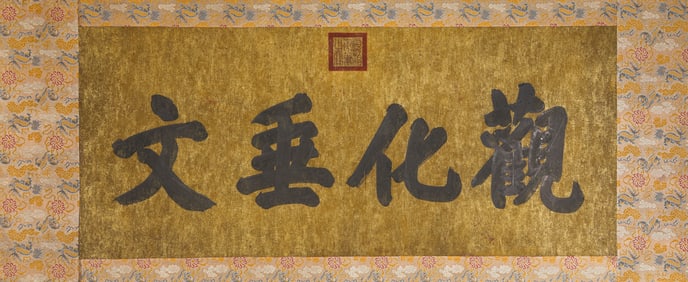 觀化垂文